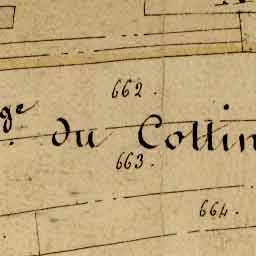 662.
ge du Collin
663.
664.